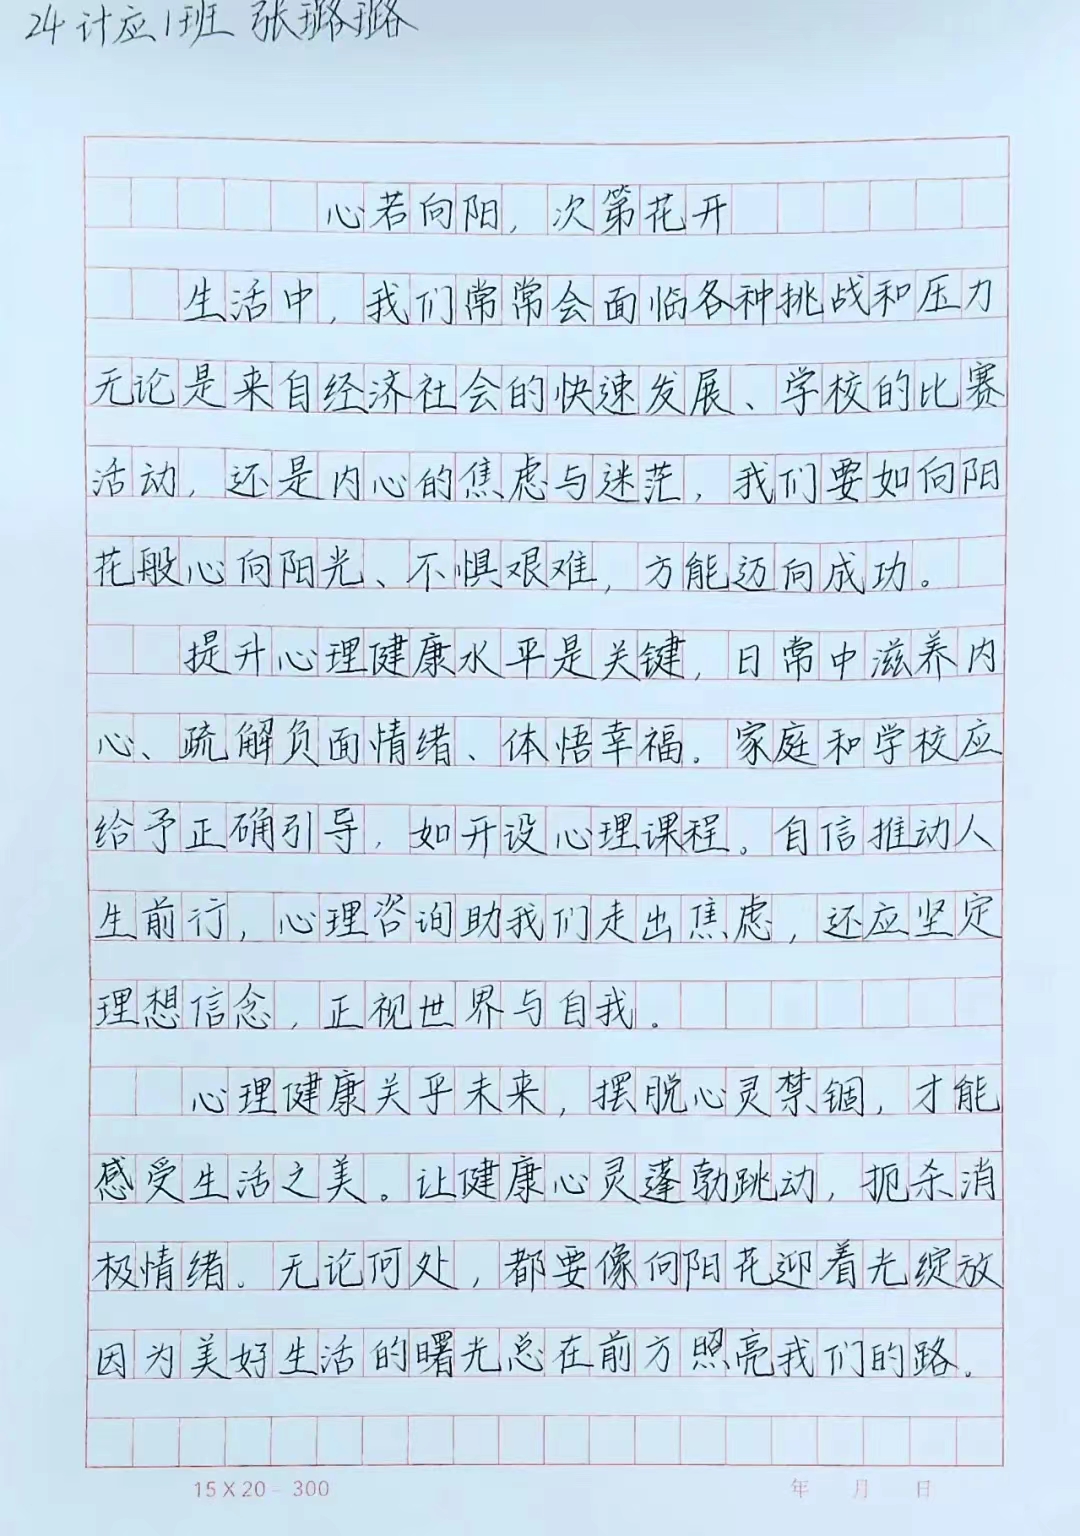 24计应1班 张璐璐
心若向阳，次第花开
生活中，我们常常会面临各种挑战和压力
无论是来自经济社会的快速发展、学校的比赛
活动，还是内心的焦虑与迷茫，我们要如向阳
花般心向阳光、不惧艰难，方能迈向成功。
提升心理健康水平是关键，日常中滋养内
心、疏解负面情绪、体悟幸福。家庭和学校应
给予正确引导，如开设心理课程。自信推动人
生前行，心理咨询助我们走出焦虑，还应坚定
理想信念，正视世界与自我。
心理健康关乎未来，摆脱心灵禁锢，才能
感受生活之美。让健康心灵蓬勃跳动，扼杀消
极情绪。无论何处，都要像向阳花迎着光绽放
因为美好生活的曙光总在前方照亮我们的路。
15×20=300 年 月 日